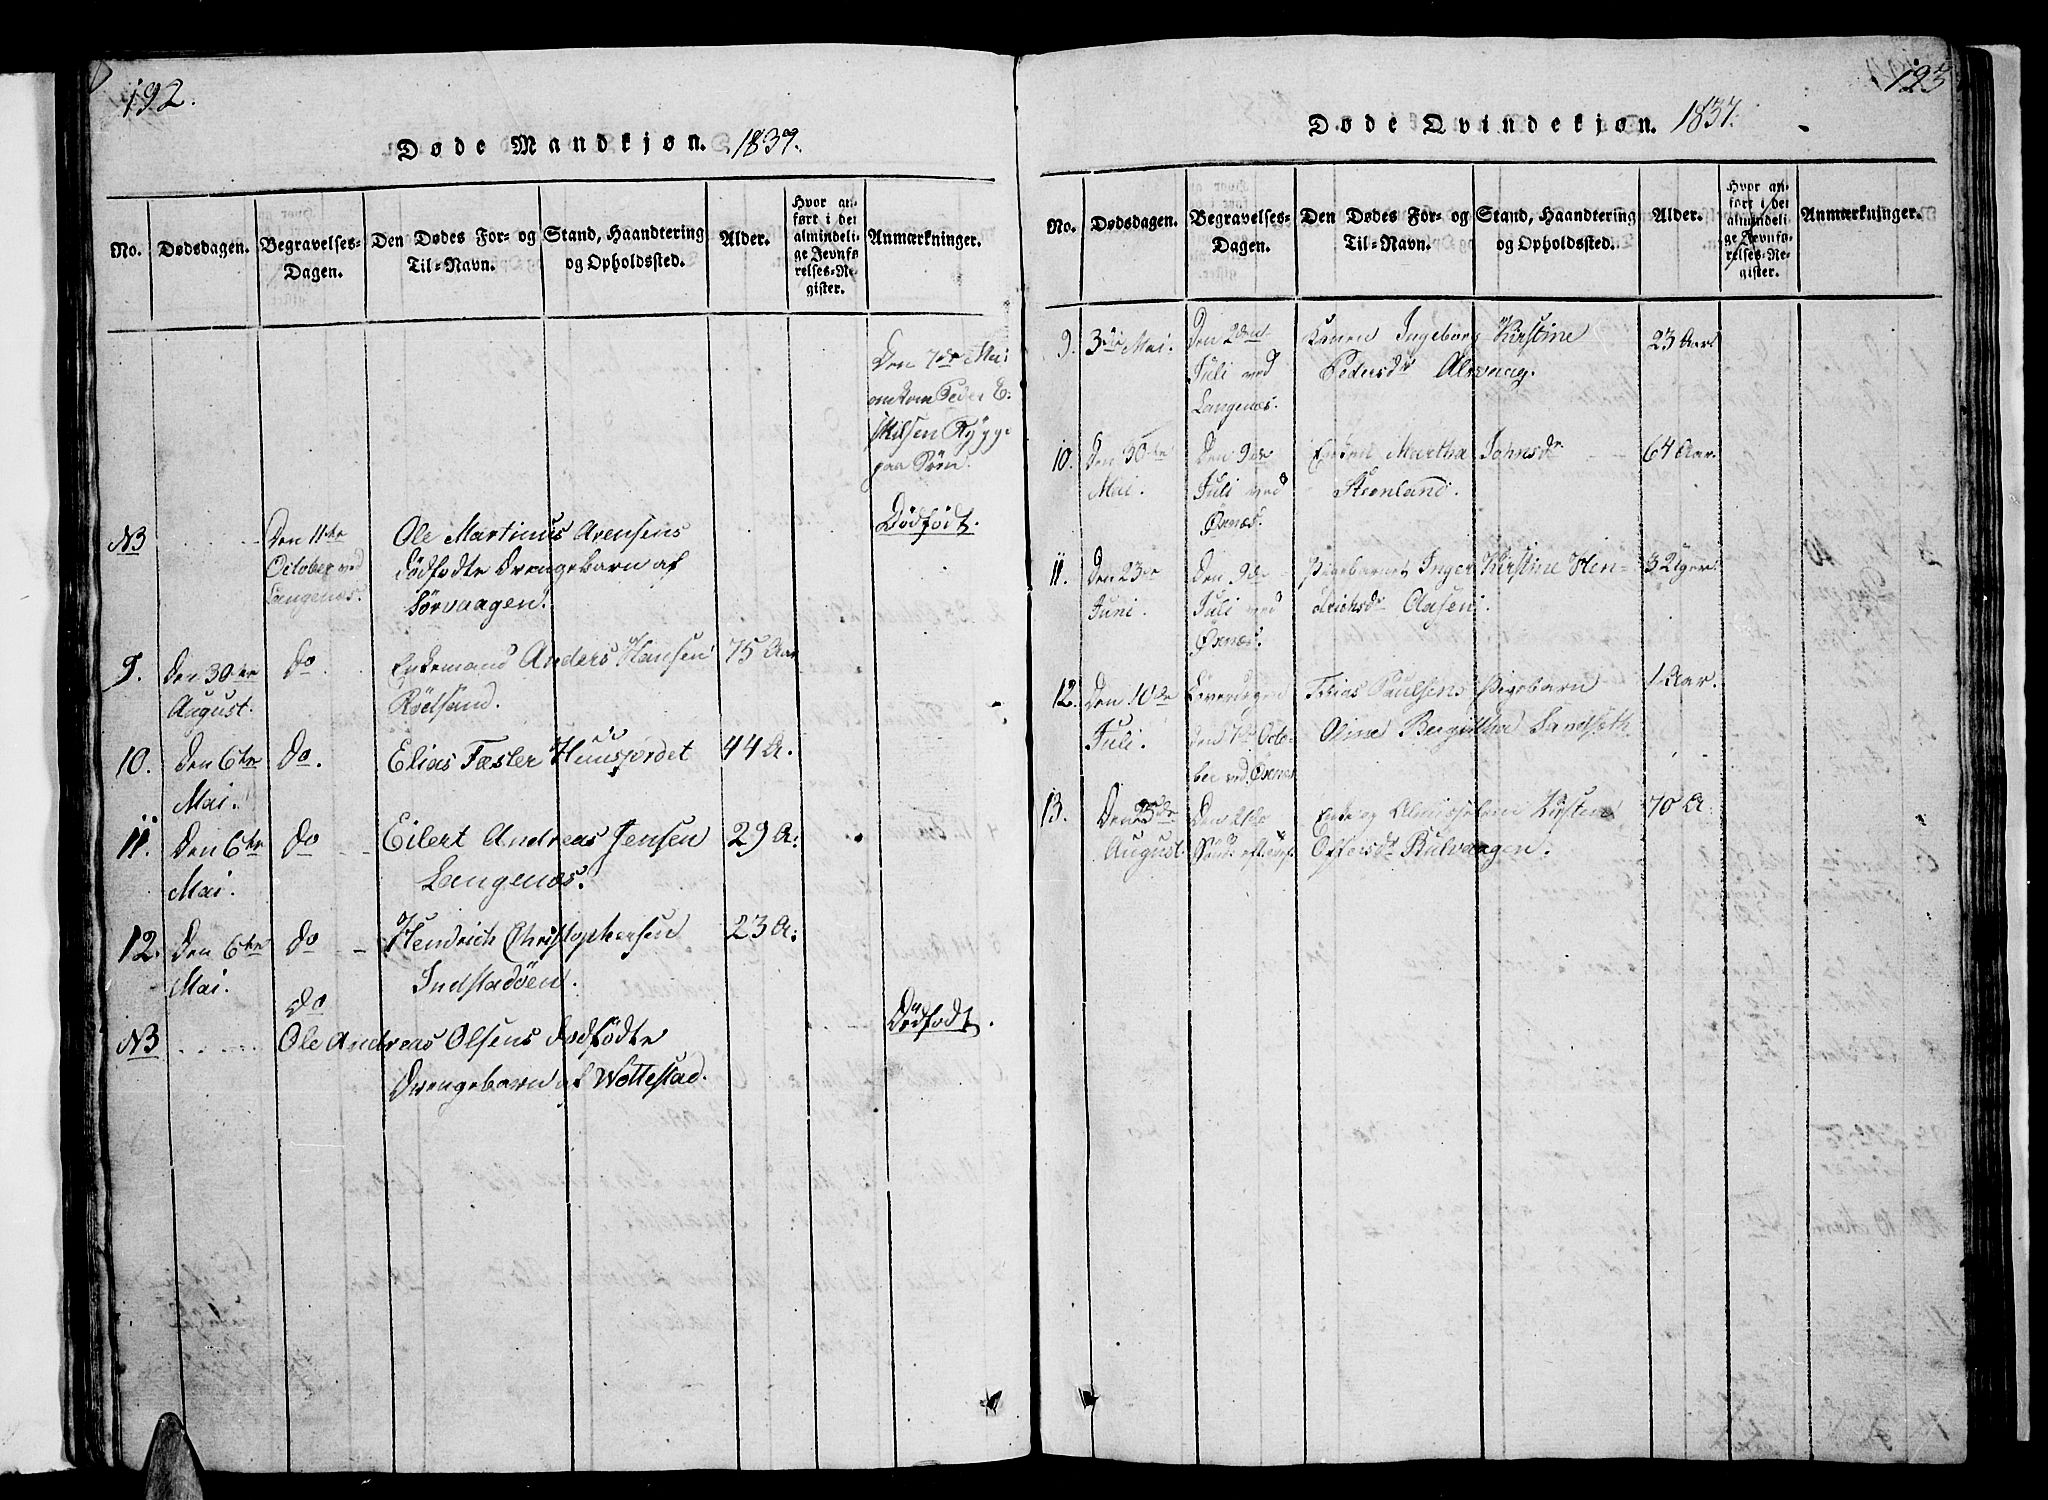 192.
Døde Mandkjøn. 1837.
No. Dødsdagen. Begravelses-Dagen. Den Dødes For- og Til-Navn. Stand, Haandtering og Opholdssted. Alder. Hvor anført i det almindelige Jevnførelses-Register. Anmærkninger.
Den 7de Mai
omkom Peder E-
skilsen Rygge
paa Søen.
NB Den 11te Ole Martinus Arensens Dödfödt.
October ved dödfödte Drengebarn af
Langenæs. Sörvaagen.
9. Den 30te do. Enkemand Anders Hansen 75 Aar
August. Rödsand.
10. Den 6te do. Elias Fæster Huusfordet 44 A.
Mai.
11. Den 6te do Eilert Andreas Jensen 29 A:
Mai. Langenæs.
12. Den 6te do Hendrich Christophersen 23 A:
Mai. Indstadöen.
do
NB Ole Andreas Olsens dödfödte Dödfödt.
Drengebarn af Wottestad.
193
Døde Qvindekjøn. 1837.
No. Dødsdagen. Begravelses-Dagen. Den Dødes For- og Til-Navn. Stand, Haandtering og Opholdssted. Alder. Hvor anført i det almindelige Jevnførelses-Register. Anmærkninger.
9. 3die Mai. Den 2den Konen Ingeborg Kirstine 23 Aar
Juli ved Pedersdr Alsvaag.
Langenæs.
10. Den 30te Den 9de Enken Martha Johnsdr 64 Aar.
Mai. Juli ved Steenland.
Öxnæs.
11. Den 23de Den 9de Pigebarnet Inger Kirstine Hen- 3 Uger
Juni. Juli ved drichsdr Olasen.
Öxnæs.
12. Den 10de Tobias Paulsens Pigebarn 1 Aar.
Juli. den 1te Octo- Oline Bergitha Sandseth
ber ved Öxnæs
13. Den Den 21de Enke og Almisselem Kirsten 70 A.
August. Offersdr Kulvaagen.